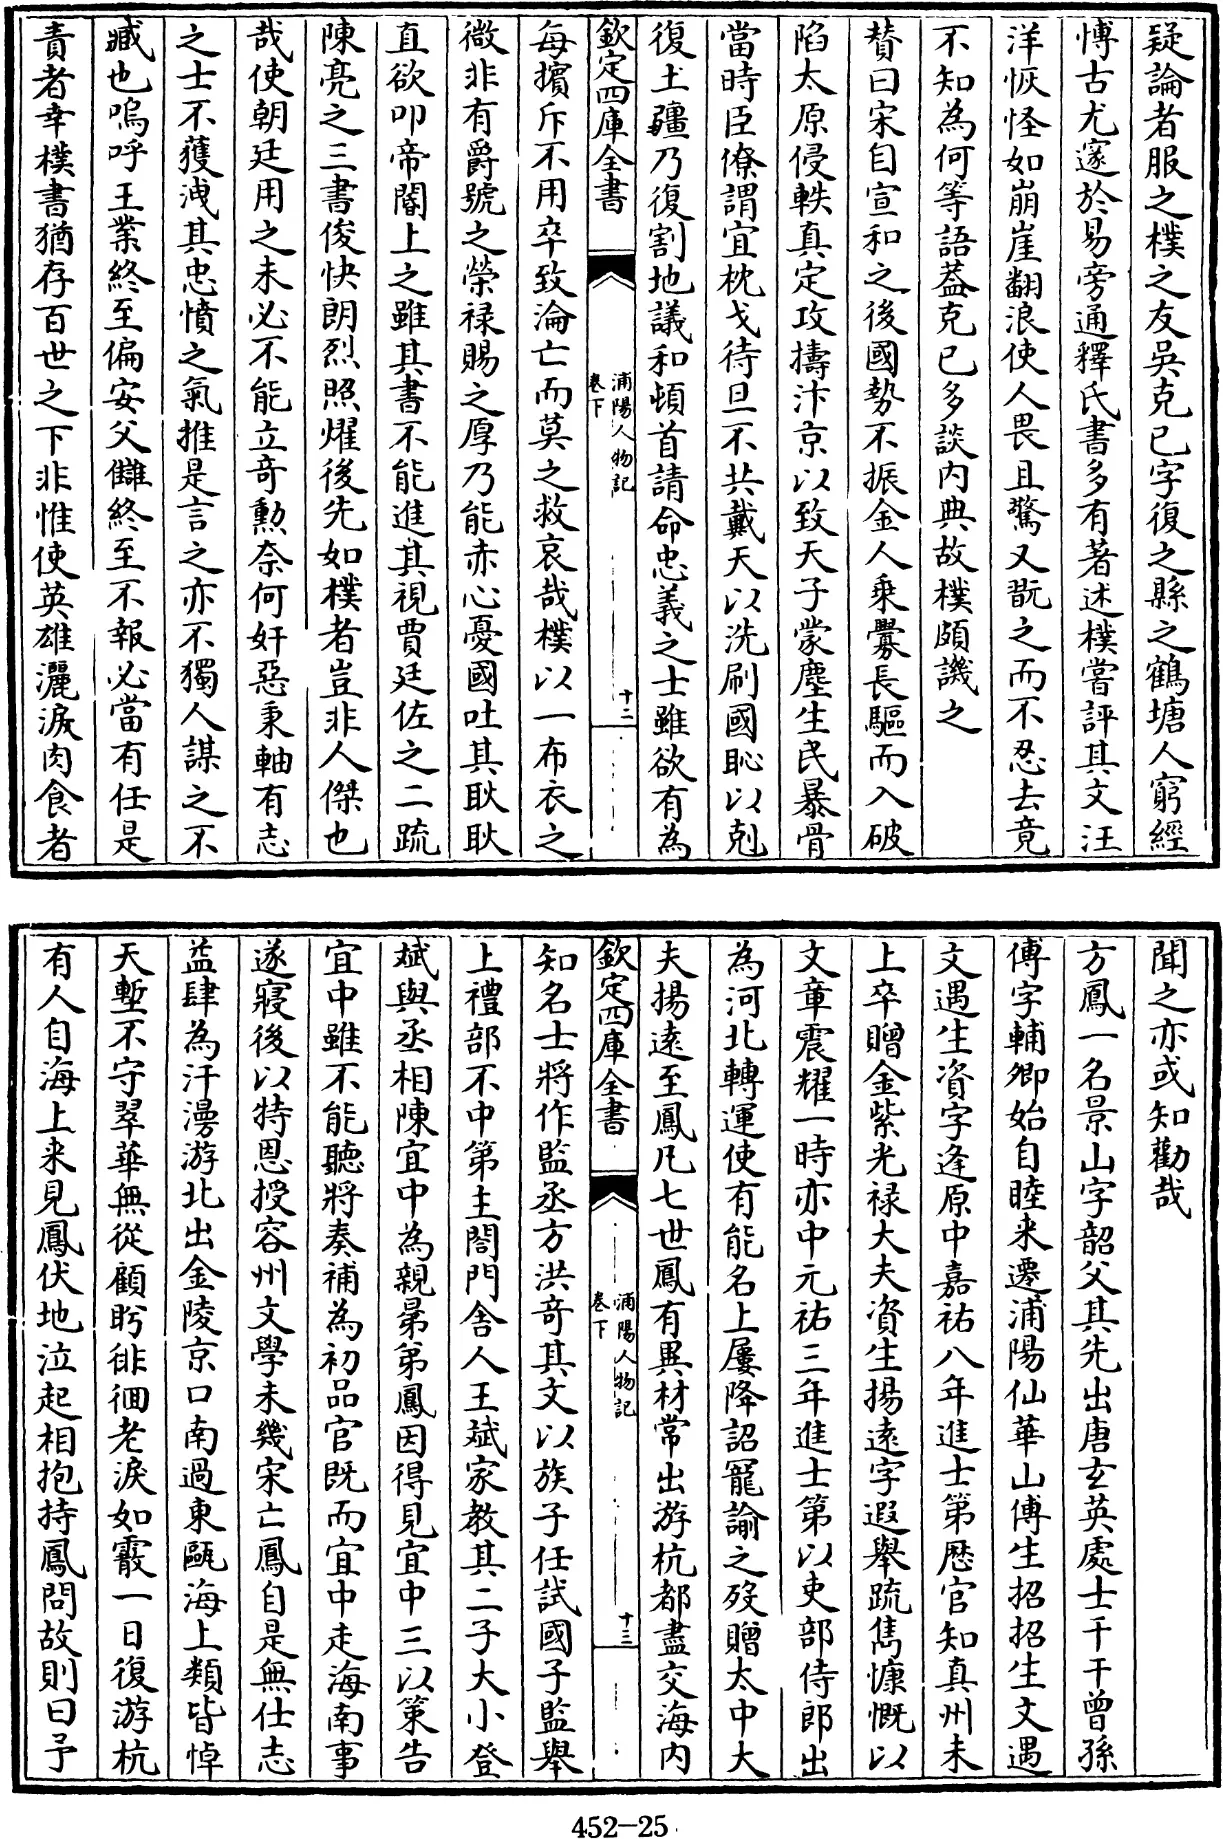 疑論者服之樸之友吳克已字復之縣之鶴塘人窮經
愽古尤邃於易旁通釋氏書多有著述樸嘗評其文汪
洋恢怪如崩崖翻浪使人畏且驚又翫之而不忍去竟
不知為何等語葢克已多談内典故樸頗譏之
贊曰宋自宣和之後國勢不振金人乘釁長驅而入破
陷太原侵軼真定攻擣汴京以致天子蒙塵生民暴骨
當時臣僚謂宜枕戈待旦不共戴天以洗刷國恥以剋
復土疆乃復割地議和頓首請命忠義之士雖欲有為
欽定四庫全書
浦陽人物記
卷下
十二
每擯斥不用卒致淪亡而莫之救哀哉樸以一布衣之
微非有爵號之榮禄賜之厚乃能赤心憂國吐其耿耿
直欲叩帝閽上之雖其書不能進其視賈廷佐之二疏
陳亮之三書俊快朗烈照燿後先如樸者豈非人傑也
哉使朝廷用之未必不能立奇勲奈何奸惡秉軸有志
之士不獲洩其忠憤之氣推是言之亦不獨人謀之不
臧也嗚呼王業終至偏安父讎終至不報必當有任是
責者幸樸書猶存百世之下非惟使英雄灑淚肉食者
聞之亦或知勸哉
方鳳一名景山字韶父其先出唐玄英處士干干曾孫
傅字輔卿始自睦来遷浦陽仙華山傅生招招生文遇
文遇生資字逢原中嘉祐八年進士第歴官知真州未
上卒贈金紫光禄大夫資生揚逺字遐舉疏雋慷慨以
文章震耀一時亦中元祐三年進士第以吏部侍郎出
為河北轉運使有能名上屢降詔寵諭之歿贈太中大
夫揚逺至鳳凡七世鳳有異材常出游杭都盡交海内
欽定四庫全書
浦陽人物記
卷下
十三
知名士將作監丞方洪奇其文以族子任試國子監舉
上禮部不中第主閤門舍人王斌家教其二子大小登
斌與丞相陳宜中為親弟鳳因得見宜中三以策告
宜中雖不能聽將奏補為初品官既而宜中走海南事
遂寢後以特恩授容州文學未幾宋亡鳳自是無仕志
益肆為汗漫游北出金陵京口南過東甌海上類皆悼
天塹不守翠華無從顧盻徘徊老淚如霰一日復游杭
有人自海上来見鳳伏地泣起相抱持鳳問故則曰予
452-25